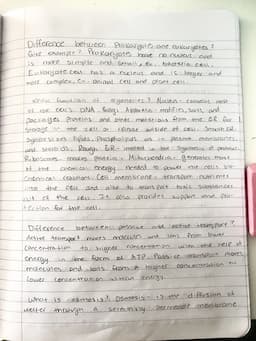 Difference between Prokaryotic and eukaryotes?
Give example? Prokaryotes have no nucleus and
is more simple and small, ex. bacteria cell.
Eukaryote cell has a nucleus and is larger and
more complex. Ex. animal cell and plant cell.
function of organelles? Nucleus - controls most
of the cell's DNA. Golgi Apparatus modifies, sorts, and
packages proteins and other materials from the ER for
storage in the cell or release outside of cell. Smooth ER
lipids, Phospholipids as in plasma membranes
and steroids. Rough ER - in the synthesis of proteins.
Ribosomes makes proteins. Mitochondria - generates most
of the chemical energy needed to power the cell's bio-
chemical reactions. Cell membrane transport nutrients
into the cell and also to transport toxic substances
out of the cell. It also provides support and pro-
tection for the cell.
Difference between passive and active transport?
Active transport moves molecules and ions from lower
concentration to higher concentration with the help of
energy in the form of ATP. Passive transport moves
molecules and ions from a higher concentration to
lower concentration without energy.
What is osmosis? Osmosis is the diffusion of
water through a semi permeable membrane